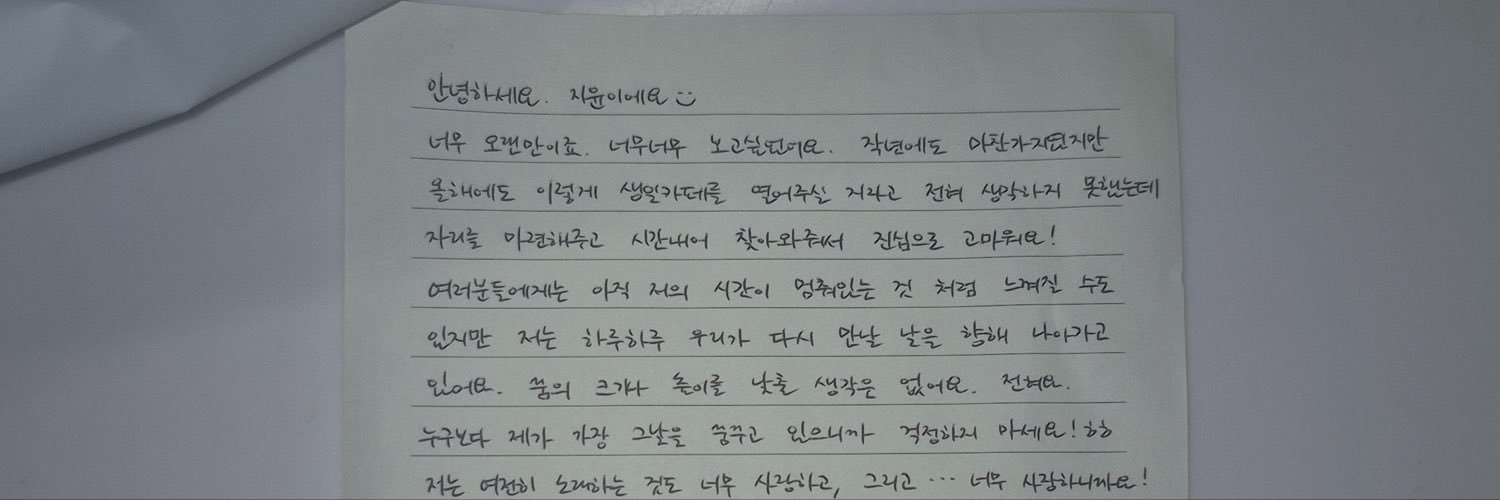 안녕하세요. 지윤이에요
너무 오랜만이죠. 너무너무 보고싶었어요. 작년에도 마찬가지였지만
올해에도 이렇게 생일카페를 열어주실 거라고 전혀 생각하지 못했는데
자리를 마련해주고 시간내어 찾아와줘서 진심으로 고마워요!
여러분들에게는 아직 저의 시간이 멈춰있는 것 처럼 느껴질 수도
있지만 저는 하루하루 우리가 다시 만날 날을 향해 나아가고
있어요. 꿈의 크기나 높이를 낮출 생각은 없어요. 전혀요.
누구보다 제가 가장 그날을 꿈꾸고 있으니까 걱정하지 마세요! ㅎㅎ
저는 여전히 노래하는 것도 너무 사랑하고, 그리고 … 너무 사랑하니까요!